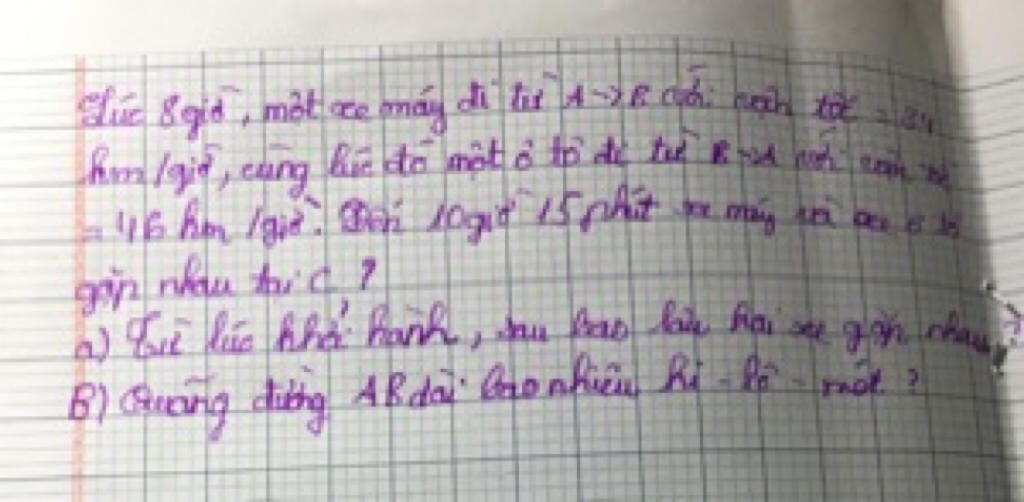 Lúc 8 giờ, một xe máy đi từ A → B với vận tốc = 34
km/giờ, cùng lúc đó một ô tô đi từ B → A với vận tốc
= 46 km/giờ. Đến 10 giờ 15 phút xe máy và xe ô tô
gặp nhau tại C ?
a) Từ lúc khởi hành, sau bao lâu hai xe gặp nhau ?
B) Quãng đường AB dài bao nhiêu ki - lô - mét ?